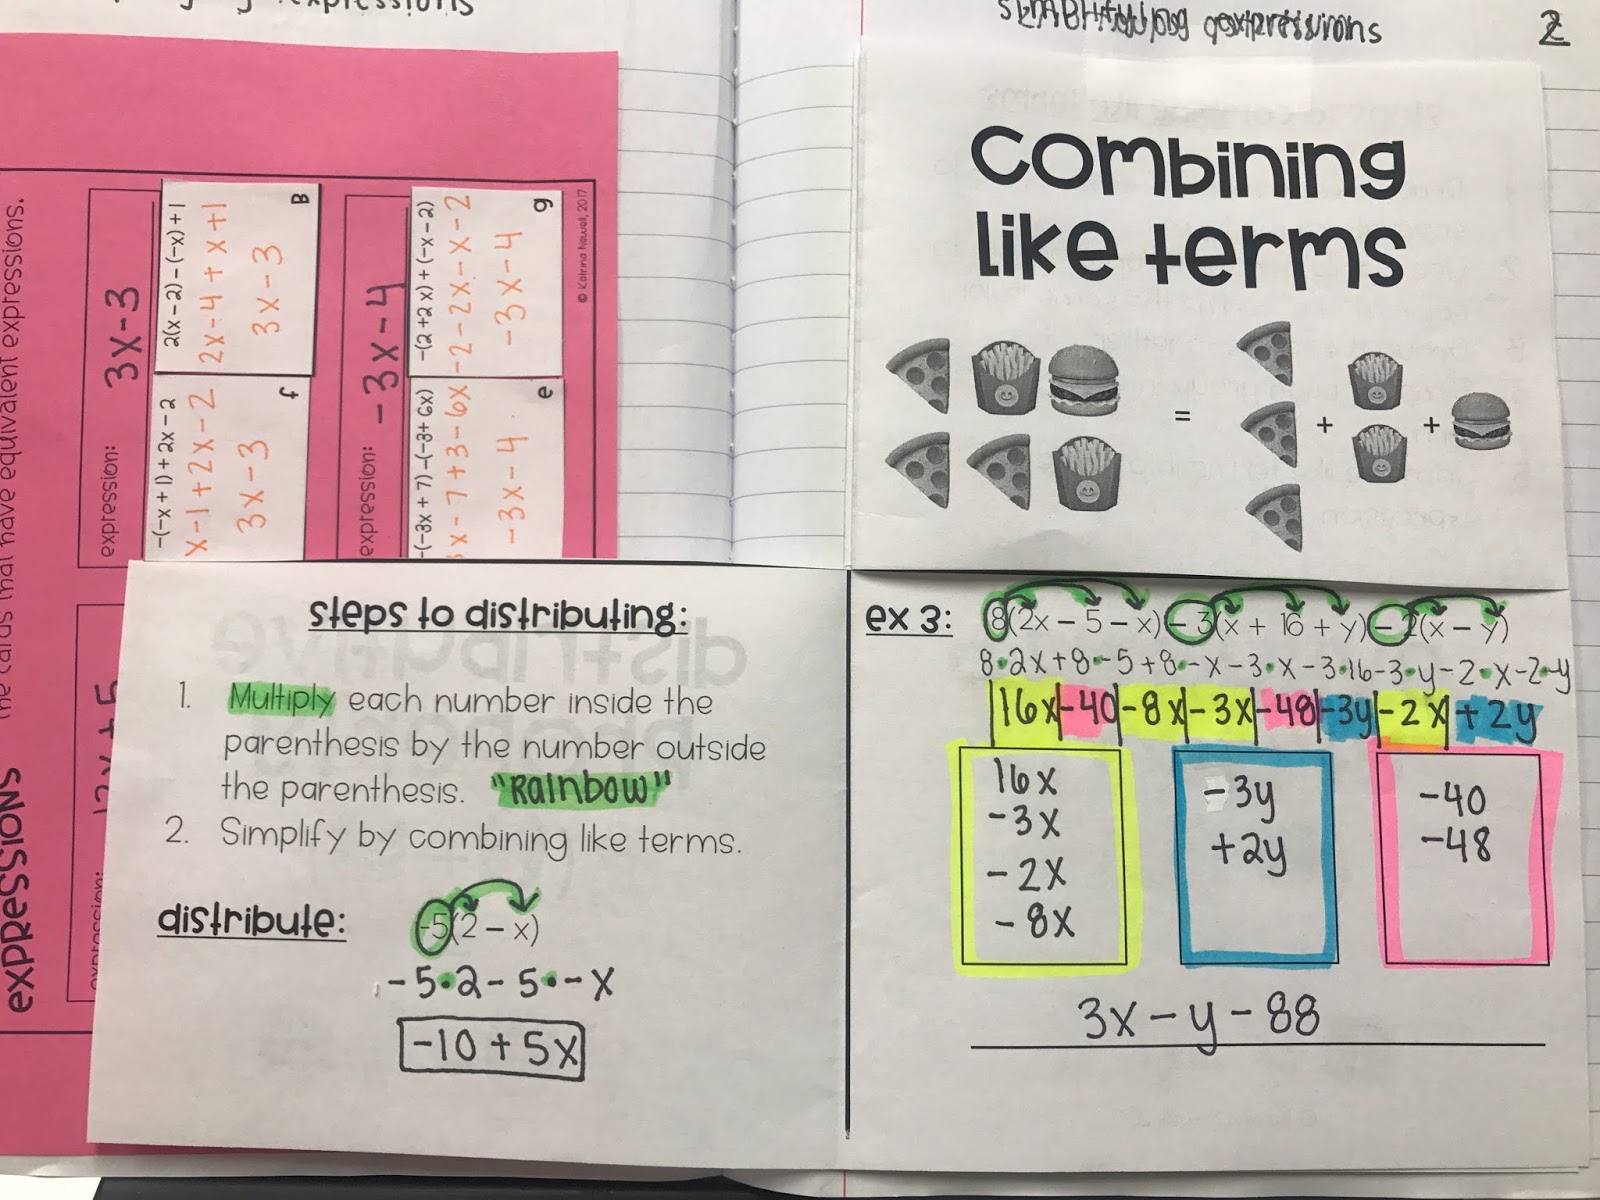 expressions
expressions
2
the cards that have equivalent expressions.
expressions
expression: 3x-3
-(-x + 1) + 2x - 2
x-1+2x-2
3x-3
f
2(x - 2) - (-x) + 1
2x-4+x+1
3x-3
B
expression: -3x-4
-(-3x + 7) -(-3+ 6x)
x-7+3-6x
-3x-4
e
-(2 +2 x) + (-x - 2)
-2-2x-x-2
-3x-4
g
© Katrina Newell, 2017
expression:
combining
like terms
= + +
steps to distributing:
1. Multiply each number inside the
parenthesis by the number outside
the parenthesis. "Rainbow"
2. Simplify by combining like terms.
distribute: -5(2 - x)
-5•2-5•-x
-10+5x
ex 3: 8(2x - 5 - x) - 3(x + 16 + y) - 2(x - y)
8•2x+8•-5+8•-x-3•x-3•16-3•y-2•x-2•-y
16x-40-8x-3x-48-3y-2x+2y
16x
-3x
-2x
-8x
-3y
+2y
-40
-48
3x-y-88